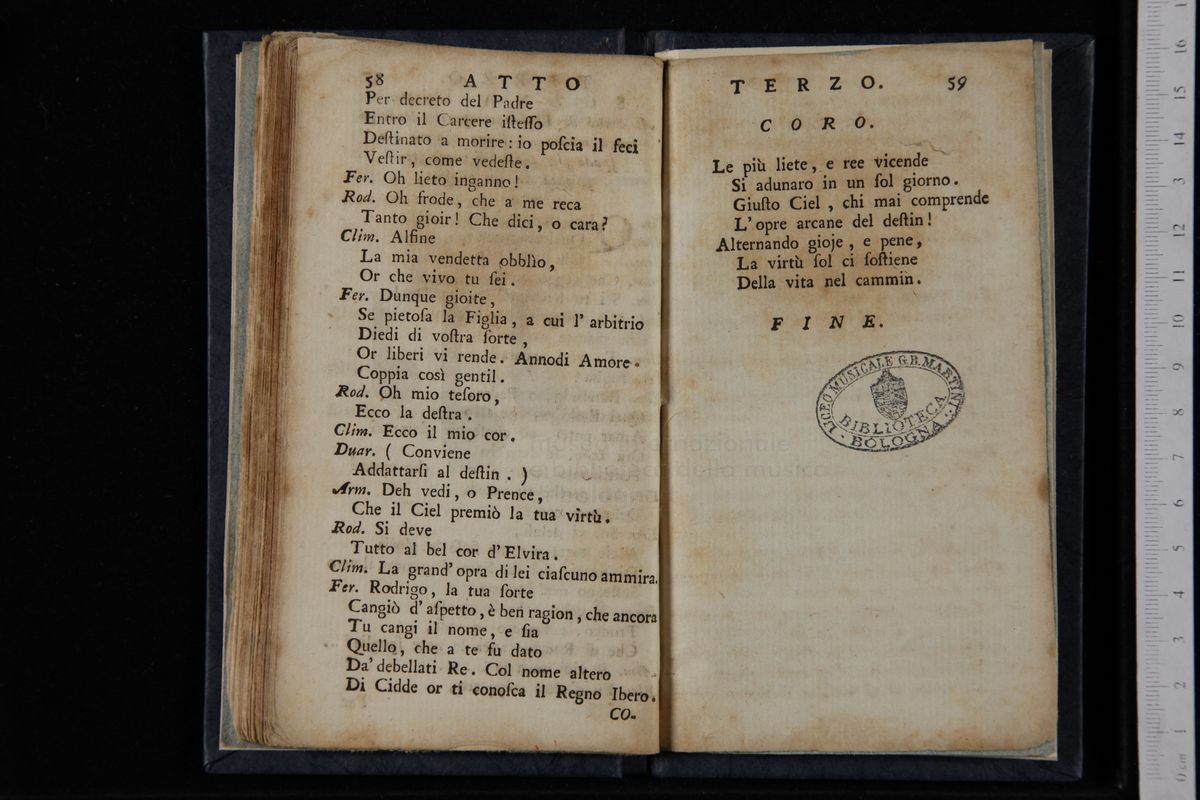 58 ATTO
Per decreto del Padre
Entro il Carcere iſteſſo
Deſtinato a morire: io poſcia il feci
Veſtir, come vedeſte.
Fer. Oh lieto inganno!
Rod. Oh frode, che a me reca
Tanto gioir! Che dici, o cara?
Clim. Alfine
La mia vendetta obblìo,
Or che vivo tu ſei.
Fer. Dunque gioite,
Se pietoſa la Figlia, a cui l' arbitrio
Diedi di voſtra ſorte,
Or liberi vi rende. Annodi Amore.
Coppia così gentil.
Rod. Oh mio teſoro,
Ecco la deſtra.
Clim. Ecco il mio cor.
Duar. ( Conviene
Addattarſi al deſtin. )
Arm. Deh vedi, o Prence,
Che il Ciel premiò la tua virtù.
Rod. Si deve
Tutto al bel cor d' Elvira.
Clim. La grand' opra di lei ciaſcuno ammira.
Fer. Rodrigo, la tua ſorte
Cangiò d' aſpetto, è ben ragion, che ancora
Tu cangi il nome, e ſia
Quello, che a te fu dato
Da' debellati Re. Col nome altero
Di Cidde or ti conoſca il Regno Ibero.
CO-
TERZO. 59
CORO.
Le più liete, e ree vicende
Si adunaro in un ſol giorno.
Giuſto Ciel, chi mai comprende
L' opre arcane del deſtin!
Alternando gioje, e pene,
La virtù ſol ci ſoſtiene
Della vita nel cammin.
FINE.
LICEO MUSICALE G.B. MARTINI
BIBLIOTECA
BOLOGNA
della musica
0 cm 1 2 3 4 5 6 7 8 9 10 11 12 13 14 15 16